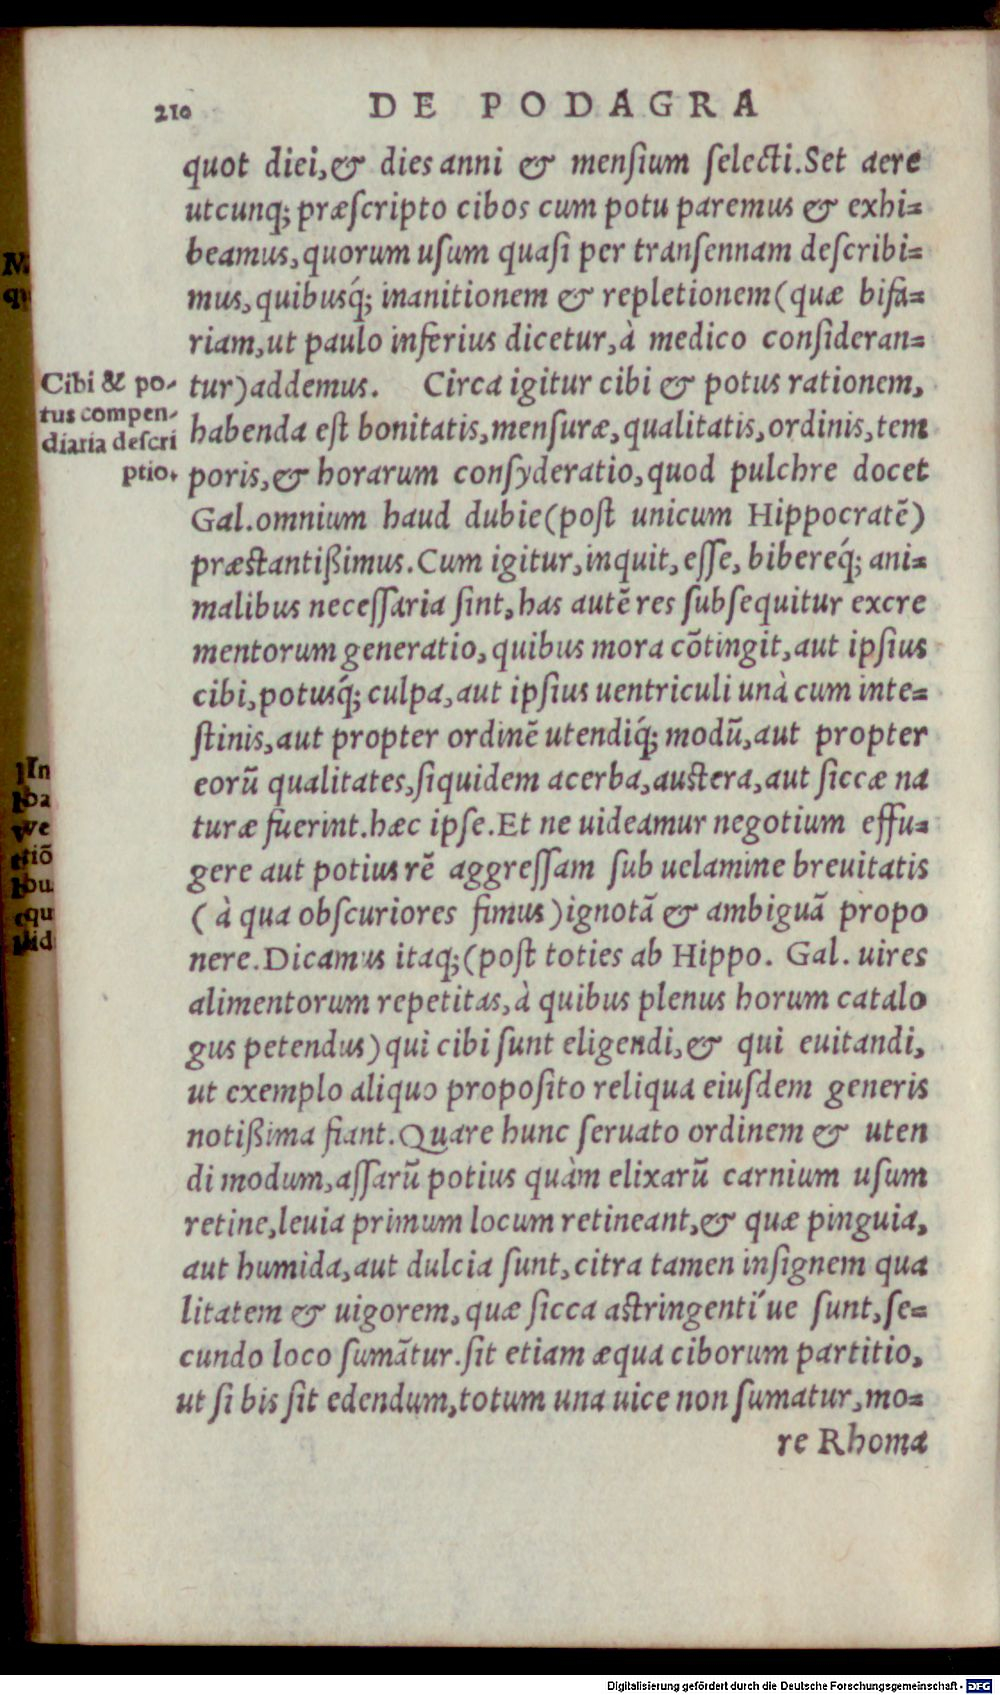 210 DE PODAGRA
quot diei, & dies anni & mensium selecti. Set aere
utcunq; præscripto cibos cum potu paremus & exhi=
beamus, quorum usum quasi per transennam describi=
mus, quibusq́; inanitionem & repletionem (quæ bifa=
riam, ut paulo inferius dicetur, à medico consideran=
tur) addemus. Circa igitur cibi & potus rationem,
habenda est bonitatis, mensuræ, qualitatis, ordinis, tem
poris, & horarum consyderatio, quod pulchre docet
Gal. omnium haud dubie (post unicum Hippocratẽ)
præstantißimus. Cum igitur, inquit, esse, bibereq́; ani=
malibus necessaria sint, has autẽ res subsequitur excre
mentorum generatio, quibus mora cõtingit, aut ipsius
cibi, potusq́; culpa, aut ipsius uentriculi unà cum inte=
stinis, aut propter ordinẽ utendiq́; modũ, aut propter
eorũ qualitates, siquidem acerba, austera, aut siccæ na
turæ fuerint. hæc ipse. Et ne uideamur negotium effu=
gere aut potius rẽ aggressam sub uelamine breuitatis
( à qua obscuriores fimus) ignotã & ambiguã propo
nere. Dicamus itaq; (post toties ab Hippo. Gal. uires
alimentorum repetitas, à quibus plenus horum catalo
gus petendus) qui cibi sunt eligendi, & qui euitandi,
ut exemplo aliquo proposito reliqua eiusdem generis
notißima fiant. Quare hunc seruato ordinem & uten
di modum, assarũ potius quàm elixarũ carnium usum
retine, leuia primum locum retineant, & quæ pinguia,
aut humida, aut dulcia sunt, citra tamen insignem qua
litatem & uigorem, quæ sicca astringenti´ue sunt, se=
cundo loco sumãtur. sit etiam æqua ciborum partitio,
ut si bis sit edendum, totum una uice non sumatur, mo=
re Rhoma
Cibi & po-
tus compen-
diaria descri
ptio.
In
ba
we
tiõ
bu
qu
id
Digitalisierung gefördert durch die Deutsche Forschungsgemeinschaft - DFG